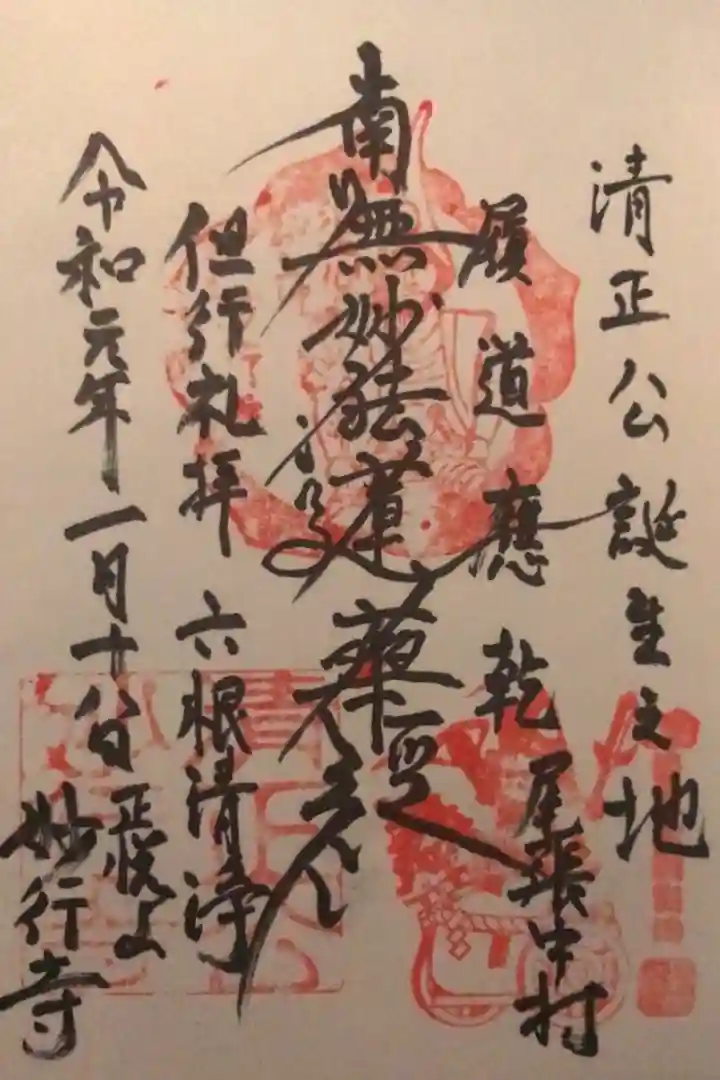 清正公誕生之地
履道應乾
尾張中村
南無妙法蓮華経
但行礼拝 六根清浄
令和元年一月十八日
妙行寺